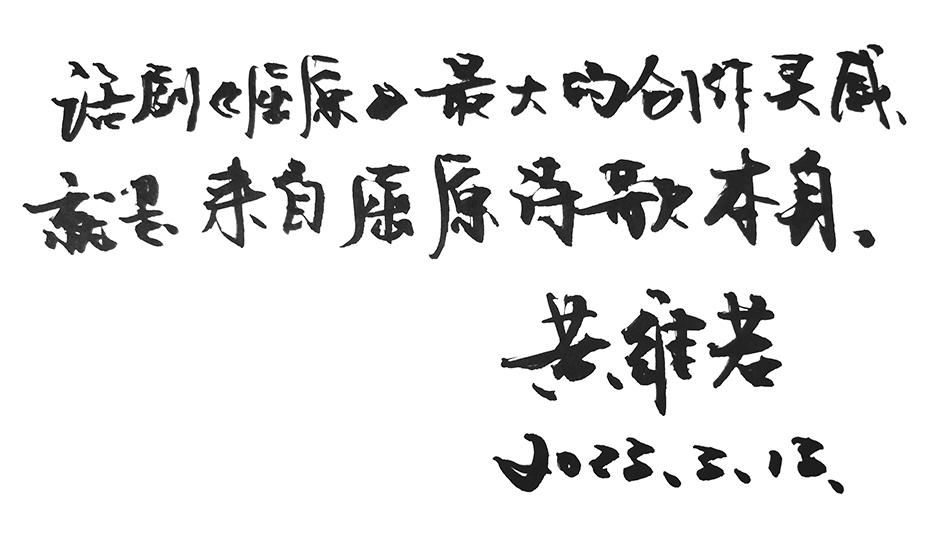 话剧《屈原》最大的创作灵感、
就是来自屈原诗歌本身.
黄维若
2023.3.13.